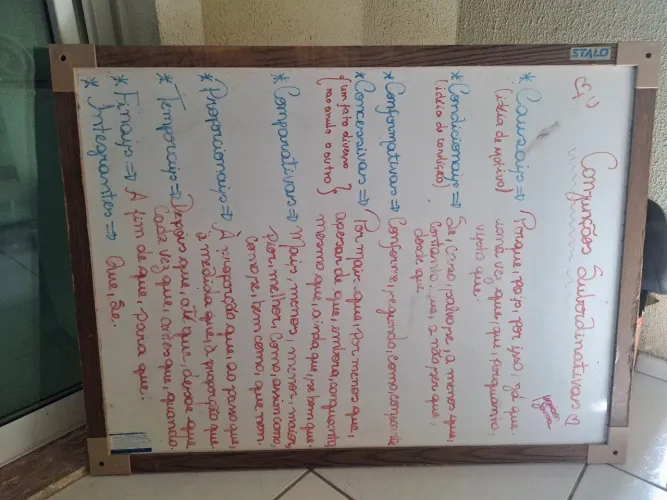 Conjunções Subordinativas
* Causais ⇒ Porque, pois, por isso, já que,
(idéia de motivo) uma vez que, que, porquanto,
visto que.
* Condicionais ⇒ Se, caso, salvo se, a menos que,
(idéia de condição) contanto que, a não ser que,
desde que.
* Conformativas ⇒ Conforme, segundo, como, consoante
* Concessivas ⇒ Por mais que, por menos que,
{um fato diverso apesar de que, embora, conquanto
não anula o outro} mesmo que, ainda que, se bem que.
* Comparativas ⇒ Mais, menos, menor, maior,
pior, melhor, como, assim como,
como se, bem como, que nem
* Proporcionais ⇒ À proporção que, ao passo que,
à medida que, à proporção que.
* Temporais ⇒ Depois que, até que, desde que
Cada vez que, antes que, quando.
* Finais ⇒ A fim de que, para que.
* Integrantes ⇒ Que, se.
STALO